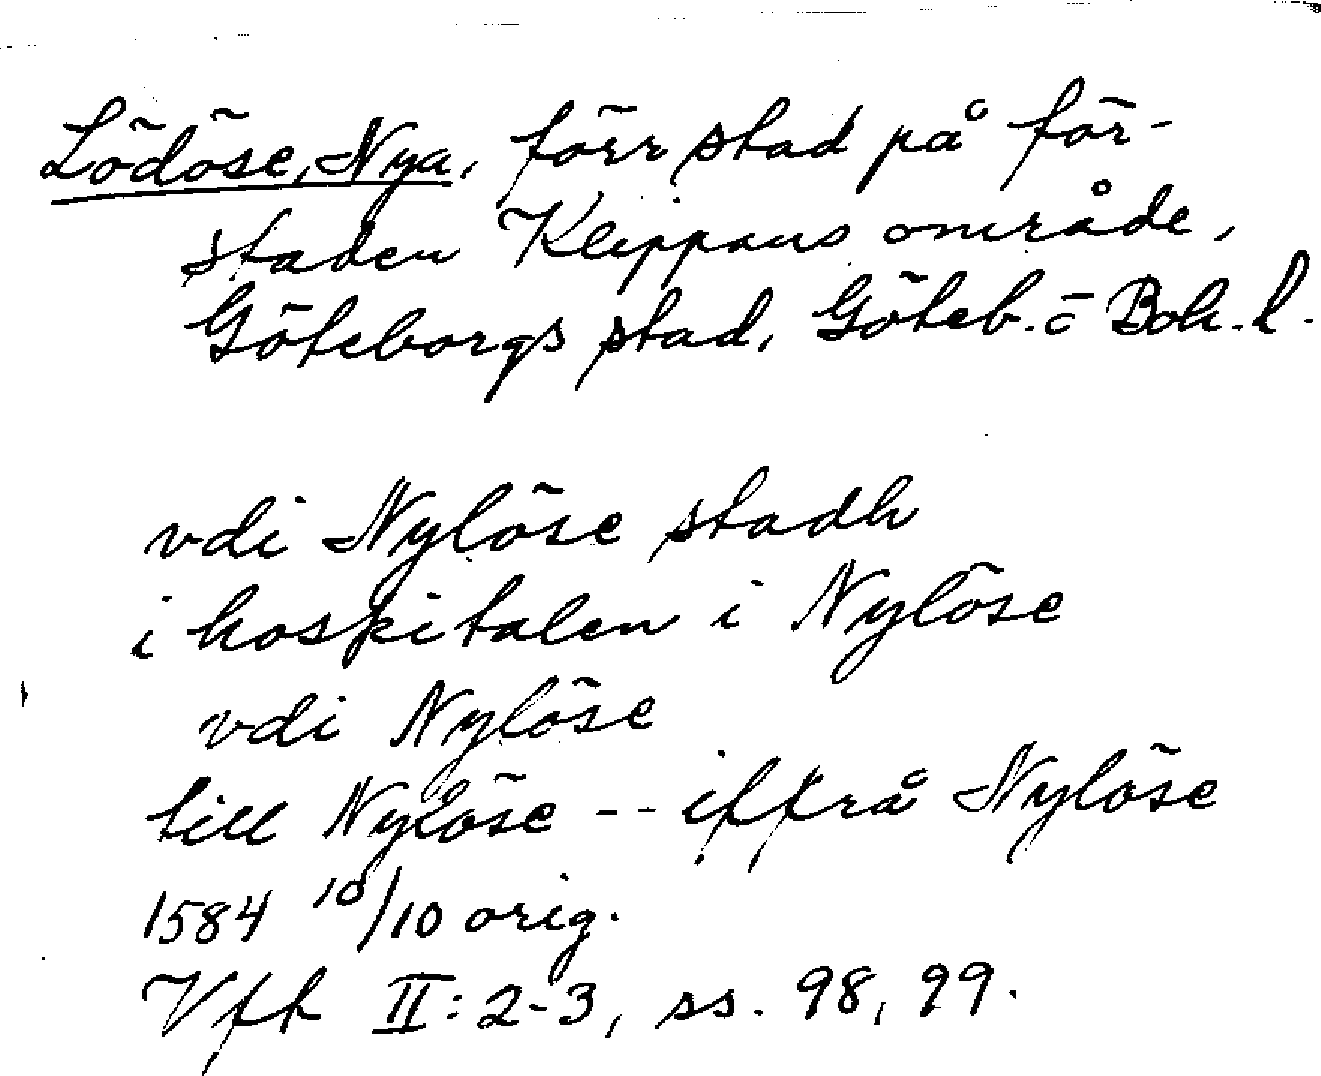 Lödöse, Nya, förr stad på för-
staden Klippans område,
Göteborgs stad, Göteb. ō Boh. l.
vdi Nylöse stadh
i hospitalen i Nylöse
vdi Nylöse
till Nylöse -- iffrå Nylöse
1584 10/10 orig.
Vfh II: 2-3, ss. 98, 99.